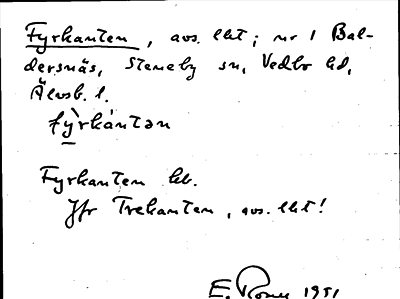 Fyrkanten, avs. lht; nr 1 Bal-
dersnäs, Steneby sn, Vedbo hd,
Älvsb. l.
fỳ̠rkáǹtən
Fyrkanten hb.
Jfr Trekanten, avs. lht!
E. 1951